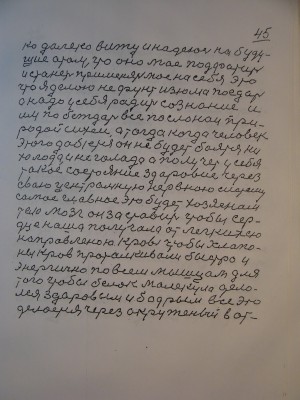 45
ко далеко вижу и надеюсь на буду-
щие этому, что оно мое поддержит
и станет применяр мое на себя это
что я делаю не даунт из юма
он надо у себя радир сознание и
им по бегдар все послокои при-
родои силеи, а тогда когда человек
этого добʹеря он не будет бояря ни
холода ни голода а получер у себя
такое состояние здаровие через
свою центрамную нервною систему
самое главное это будет хозяенам
тело мозг он заставир чтобы сер-
дце наша получала от легких ею
направленою кровʹ чтобы клапо-
ны кровʹ проталкивали быстро и
энергично по всем мышцам для
того чтобы белок малекула дело-
лся здаровым и бодрым все это
делоеря через окруженый в от-